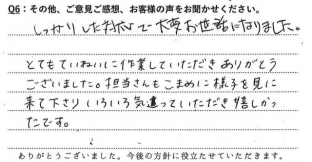 Q6：その他、ご意見ご感想、お客様の声をお聞かせください。
しっかりした対応で大変お世話になりました。
とてもていねいに作業していただきありがとう
ございました。担当さんもこまめに様子を見に
来て下さりいろいろ気遣っていただき嬉しかっ
たです。
ありがとうございました。今後の方針に役立たせていただきます。